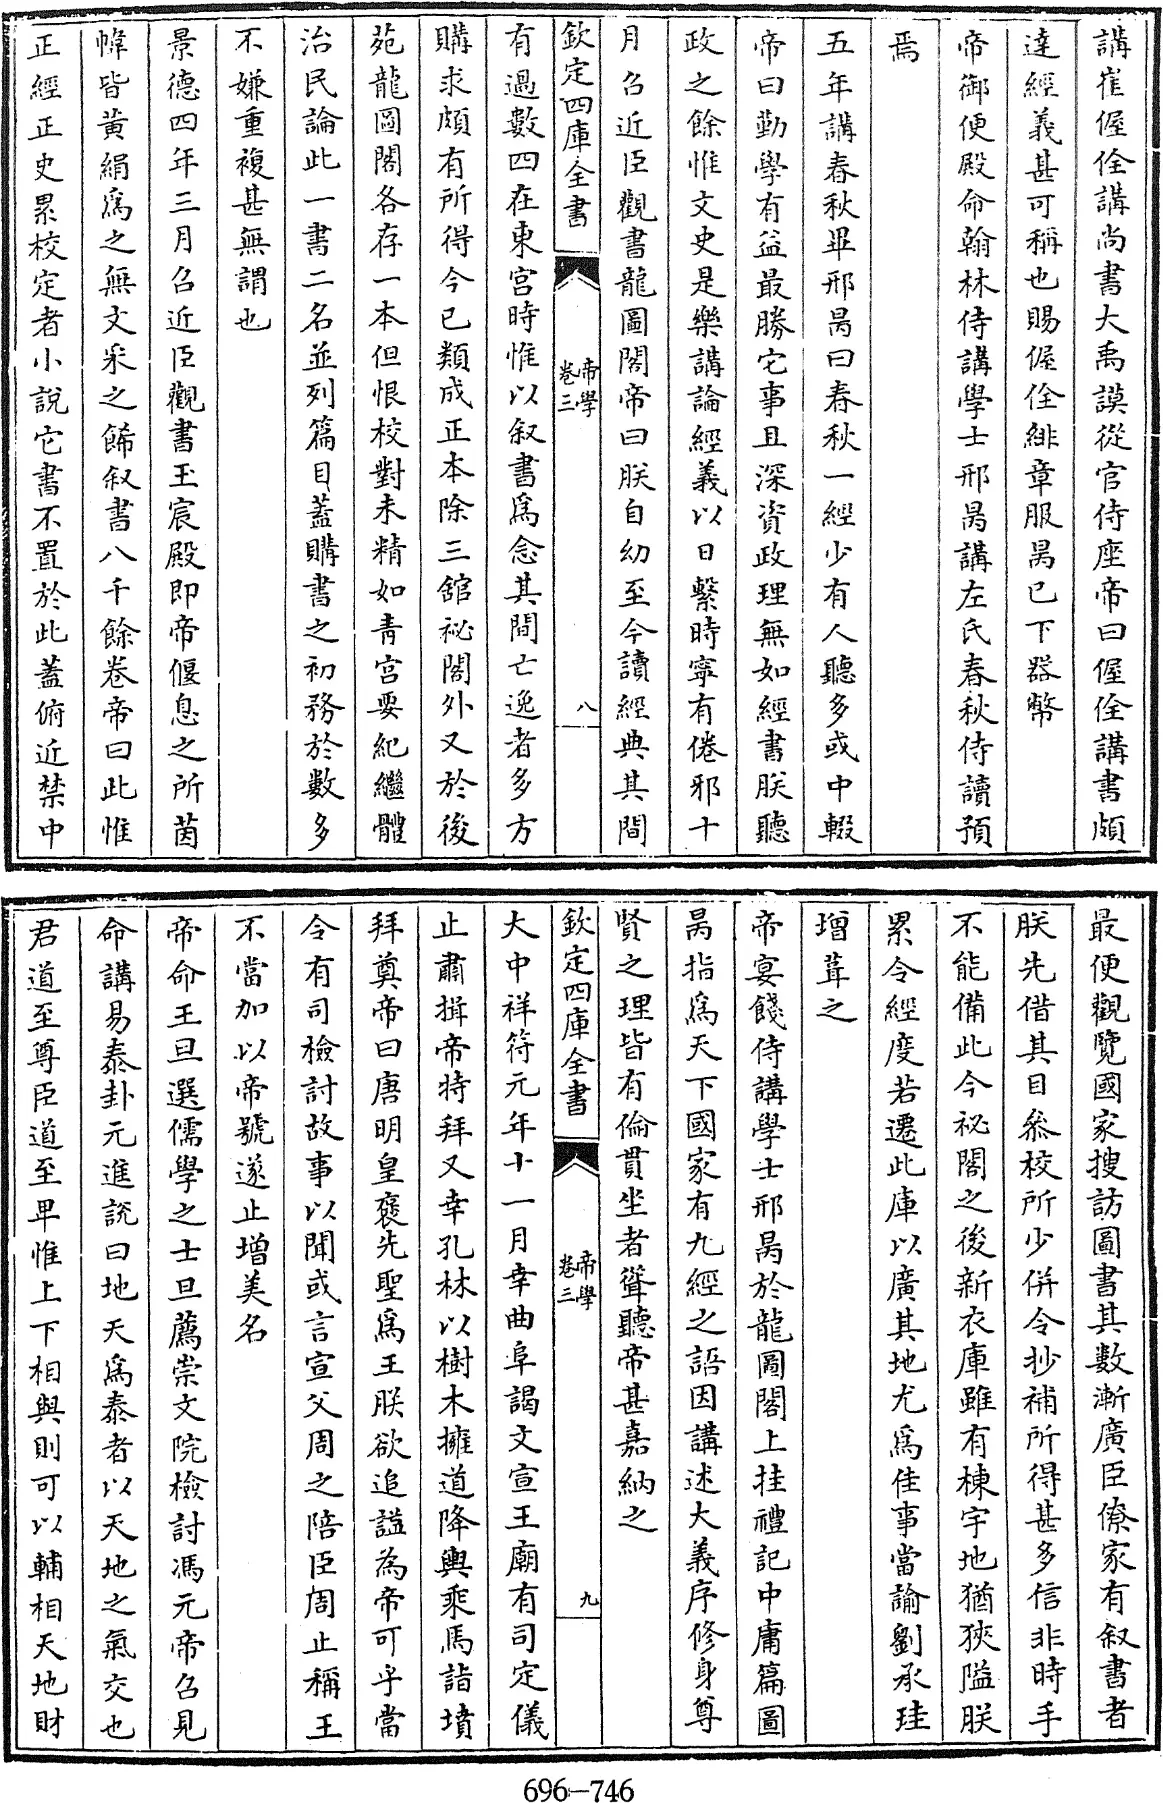 講崔偓佺講尚書大禹謨從官侍座帝曰偓佺講書頗
達經義甚可稱也賜偓佺緋章服昺已下器幣
帝御便殿命翰林侍講學士邢昺講左氏春秋侍讀預
焉
五年講春秋畢邢昺曰春秋一經少有人聽多或中輟
帝曰勤學有益最勝它事且深資政理無如經書朕聽
政之餘惟文史是樂講論經義以日繫時寧有倦邪十
月召近臣觀書龍圖閣帝曰朕自幼至今讀經典其間
欽定四庫全書
帝學
卷三
八
有過數四在東宮時惟以叙書爲念其間亡逸者多方
購求頗有所得今已類成正本除三舘祕閣外又於後
苑龍圖閣各存一本但恨校對未精如青宮要紀繼體
治民論此一書二名並列篇目蓋購書之初務於數多
不嫌重複甚無謂也
景德四年三月召近臣觀書玉宸殿即帝偃息之所茵
幃皆黃絹爲之無文采之飾叙書八千餘卷帝曰此惟
正經正史累校定者小說它書不置於此蓋俯近禁中
最便觀覽國家搜訪圖書其數漸廣臣僚家有叙書者
朕先借其目叅校所少併令抄補所得甚多信非時手
不能備此今祕閣之後新衣庫雖有棟宇地猶狹隘朕
累令經度若遷此庫以廣其地尤爲佳事當諭劉承珪
增葺之
帝宴餞侍講學士邢昺於龍圖閣上挂禮記中庸篇圖
昺指爲天下國家有九經之語因講述大義序修身尊
賢之理皆有倫貫坐者聳聽帝甚嘉納之
欽定四庫全書
帝學
卷三
九
大中祥符元年十一月幸曲阜謁文宣王廟有司定儀
止肅揖帝特拜又幸孔林以樹木擁道降輿乘馬詣墳
拜奠帝曰唐明皇褒先聖爲王朕欲追諡為帝可乎當
令有司檢討故事以聞或言宣父周之陪臣周止稱王
不當加以帝號遂止增美名
帝命王旦選儒學之士旦薦崇文院檢討馮元帝召見
命講易泰卦元進說曰地天爲泰者以天地之氣交也
君道至尊臣道至卑惟上下相與則可以輔相天地財
696—746